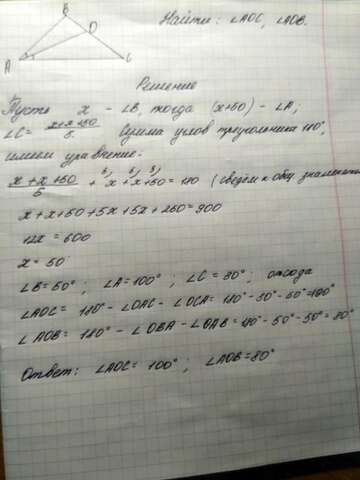 B
D
A
C
Найти: ∠ADC, ∠ADB.
Решение
Пусть x - ∠B, тогда (x+50) - ∠A;
∠C = (x+x+50)/5 Сумма углов треугольника 180°,
имеем уравнение:
(x+x+50)/5 + x + x+50 = 180 (сведём к общ. знаменат
x+x+50+5x+5x+250=900
12x = 600
x = 50
∠B=50°; ∠A=100°; ∠C=30°; отсюда
∠ADC= 180° - ∠DAC - ∠DCA = 180°-50°-30°=100°
∠ADB = 180° - ∠DBA - ∠DAB = 180°-50°-50° = 80°
Ответ: ∠ADC = 100°; ∠ADB=80°